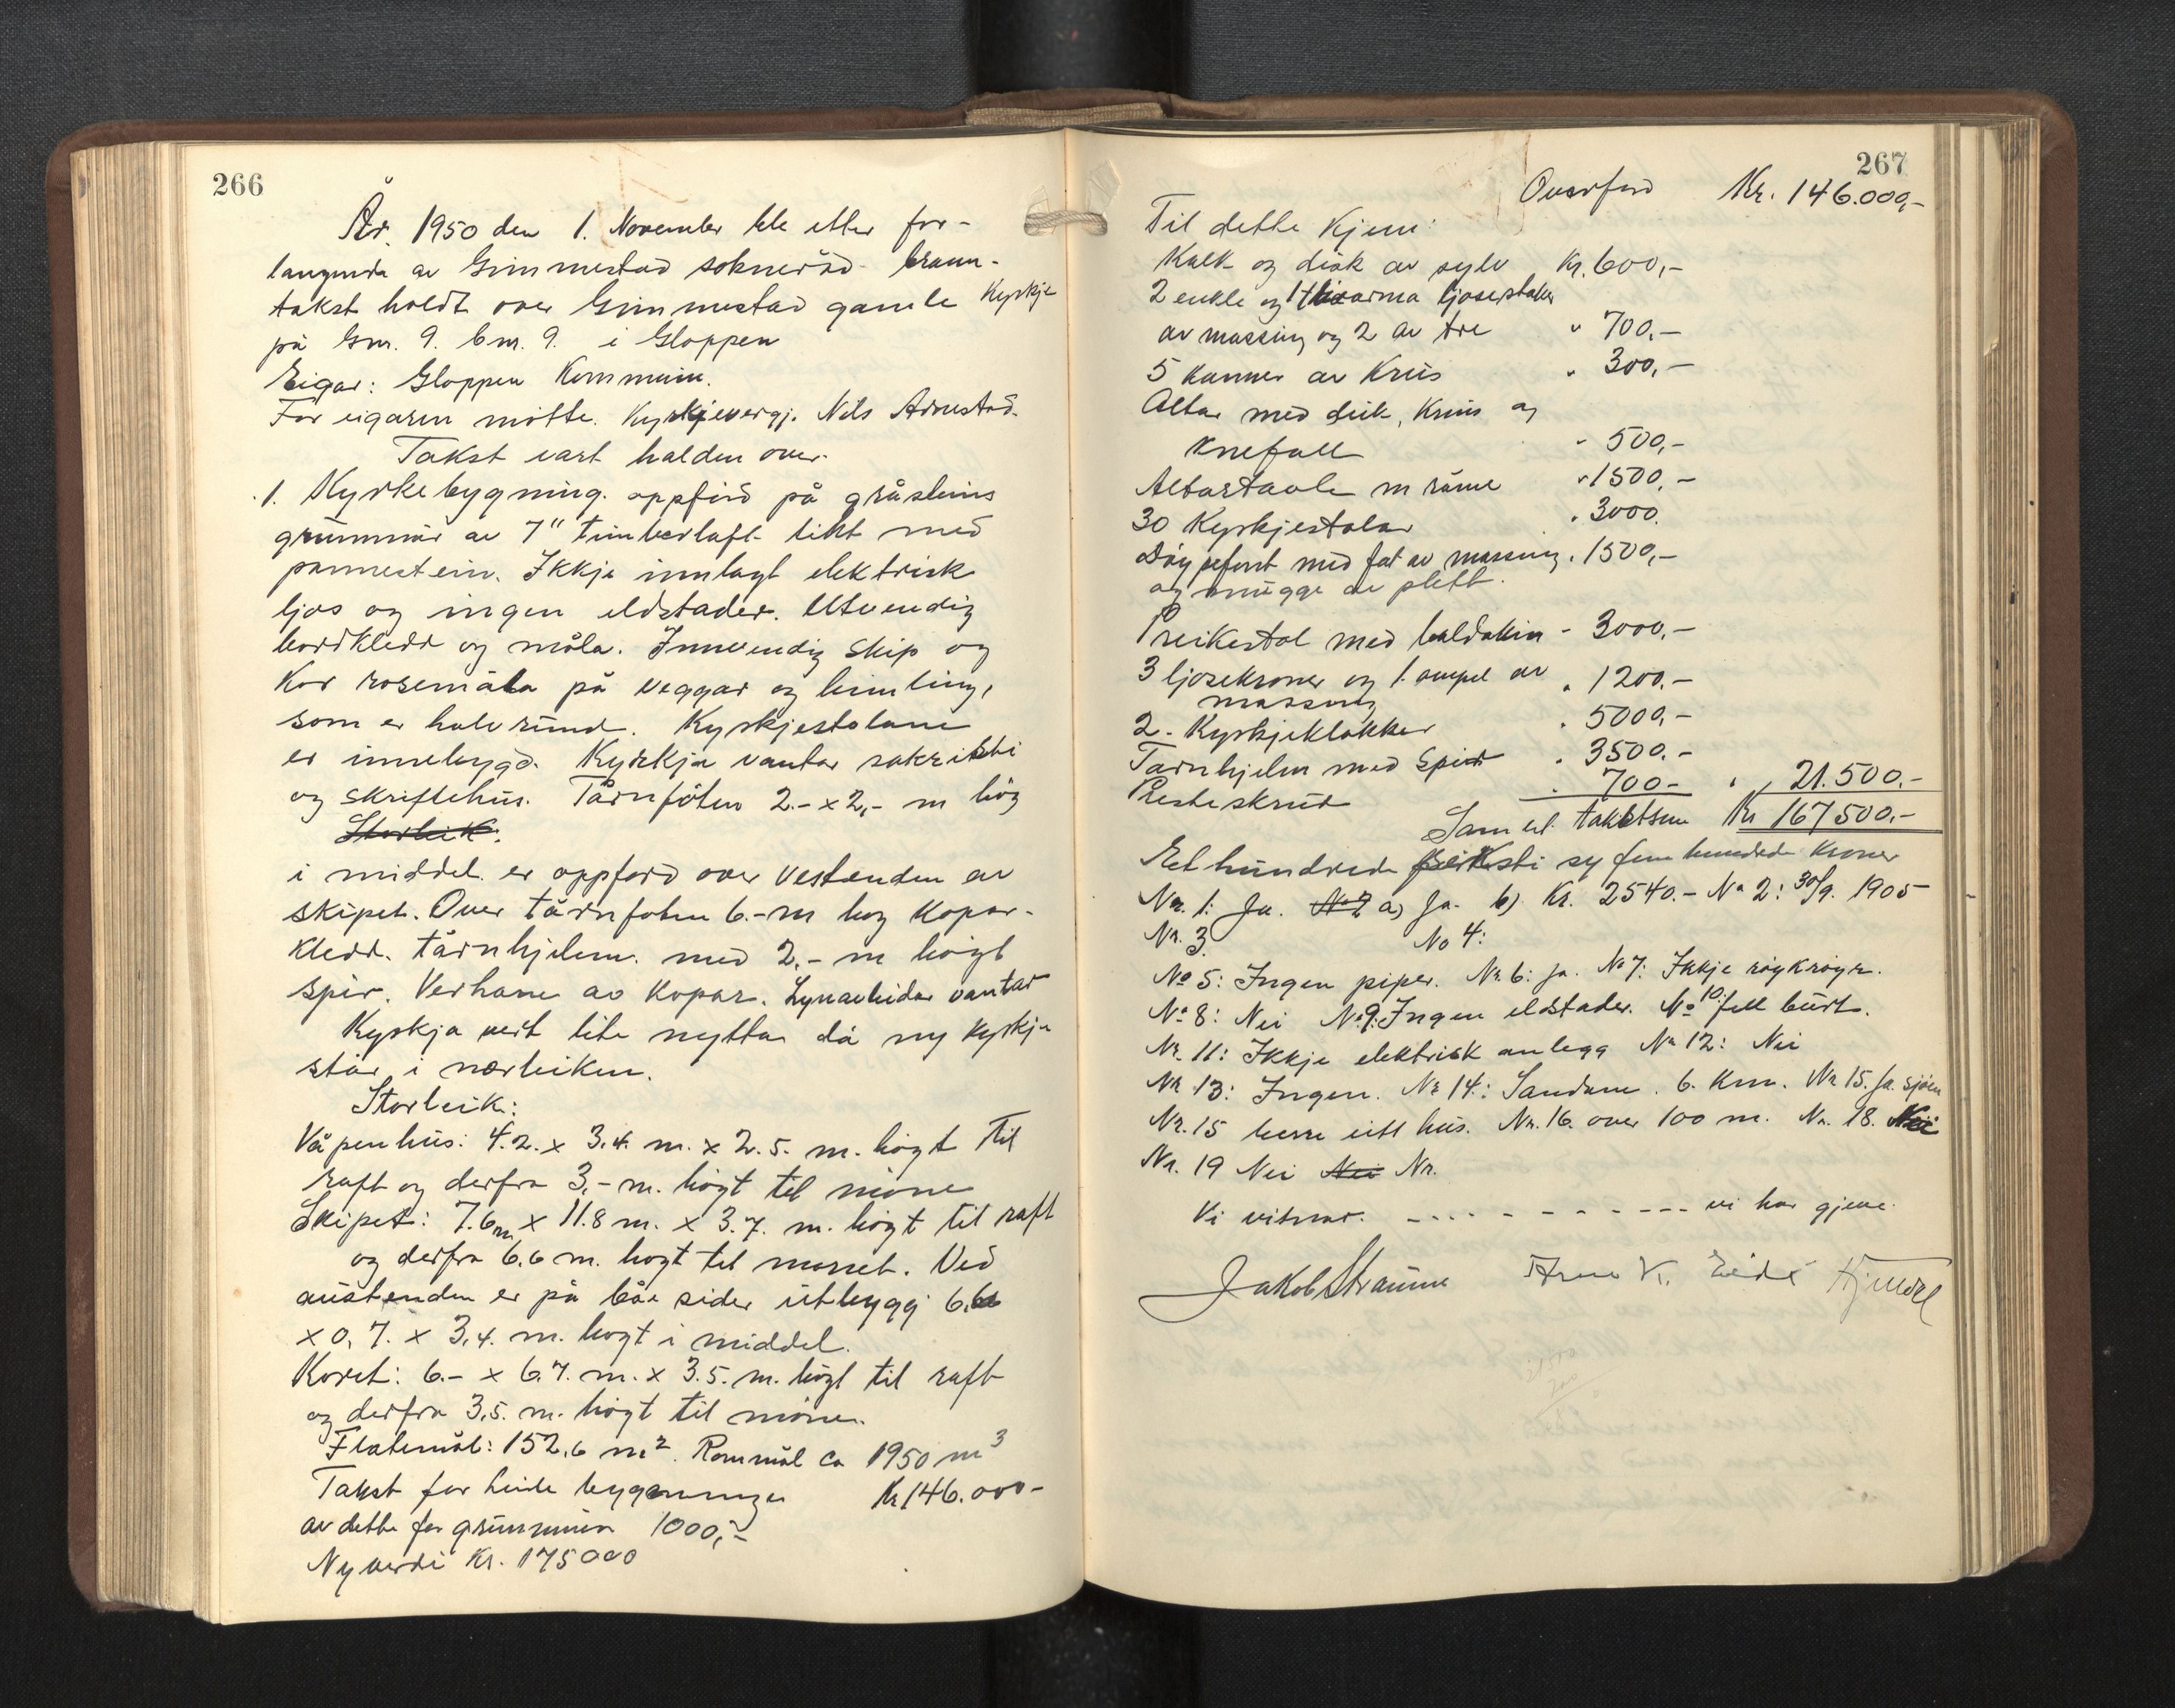 266
År. 1950 den 1. November ble etter for-
langende av Gimmestad sokneråd brann-
takst holdt over Gimmestad gamle Kyrkje
på Gnr. 9. bnr. 9. i Gloppen
Eigar: Gloppen Kommune.
For eigaren møtte. Kyrkjevergj. Nils Arnestad.
Takst vart halden over.
1. Kyrkebygning. oppførd på gråsteins
grunnmur av 7" timberlaft tekt med
pannestein. Ikkje innlagt elektrisk
ljos og ingen eldstader. Utvendig
bordkledd og måla. Innvendig skip og
Kor rosemåla på veggar og himling,
som er halv rund. Kyrkjestolane
er innebygd. Kyrkja vantar sakristi
og skriftehus. Tårnfoten 2.- x 2,- m høg
Storleik:
i middel. er oppførd over Vestenden av
skipet. Over tårnfoten 6.-m høg Kopar-
kledd. tårnhjelm. med 2.- m högt
spir. Verhane av Kopar. Lynavleidar vantar
Kyrkja vert lite nytta då ny kyrkje
står i nærleiken.
Storleik:
Våpenhus: 4.2. x 3.4. m. x 2.5. m. högt til
raft og derfra 3,- m. högt til möne
Skipet: 7.6 m x 11.8 m. x 3.7. m. högt til raft
og derfra 6.6 m. högt til mønet. Ved
austenden er på båe sider utbygg 6.6
x 0.7. x 3.4. m. högt i middel.
Koret: 6.- x 6.7. m. x 3.5. m. högt til raft
og derfra 3.5. m. högt til möne.
Flatemål: 152.6 m². Rommål ca 1950 m³
Takst for heile bygninga Kr 146.000-
av dette for grunnmur 1000,-
Nyverdi Kr. 175000
267
Overført Kr. 146.000,-
Til dette kjem:
Kalk og disk av sylv Kr. 600,-
2 enkle og 1 arma ljosestaker
av massing og 2 av tre " 700.-
5 kanner av Krus " 300,-
Altar med duk, Krus og
Knefall " 500,-
Altartavle m råme " 1500.-
30 Kyrkjestolar " 3000.
Døypefont med fat av massing " 1500,-
og mugge av plett.
Preikestol med baldakin - 3000,-
3 ljosekroner og 1. ampel av " 1200.-
massing
2. Kyrkjeklokker " 5000,-
Tårnhjelm med Spir " 3500.-
Presteskrud " 700- " 21.500.-
Saml. takstsum Kr 167500.-
Eet hundrede seksti sy fem hundrede Kroner
Nr. 1: Ja. No 2 a) Ja. b) Kr. 2540.- No 2: 30/9. 1905
Nr. 3. No 4:
No 5: Ingen piper. Nr. 6: Ja. No 7: Ikkje røykrøyr.
No 8: Nei No 9: Ingen eldstader. No 10: fell burt.
Nr. 11: Ikkje elektrisk anlegg Nr 12: Nei
Nr 13: Ingen. Nr 14: Sandane. 6. Km. Nr 15. Ja. sjöen
Nr. 15 berre eitt hus. Nr. 16. over 100 m. Nr. 18. Nei
Nr. 19 Nei Nei Nr.
Vi vitnar. - - - - - - - - - - - vi har gjeve.
Jakob Straume Arne K. Eide